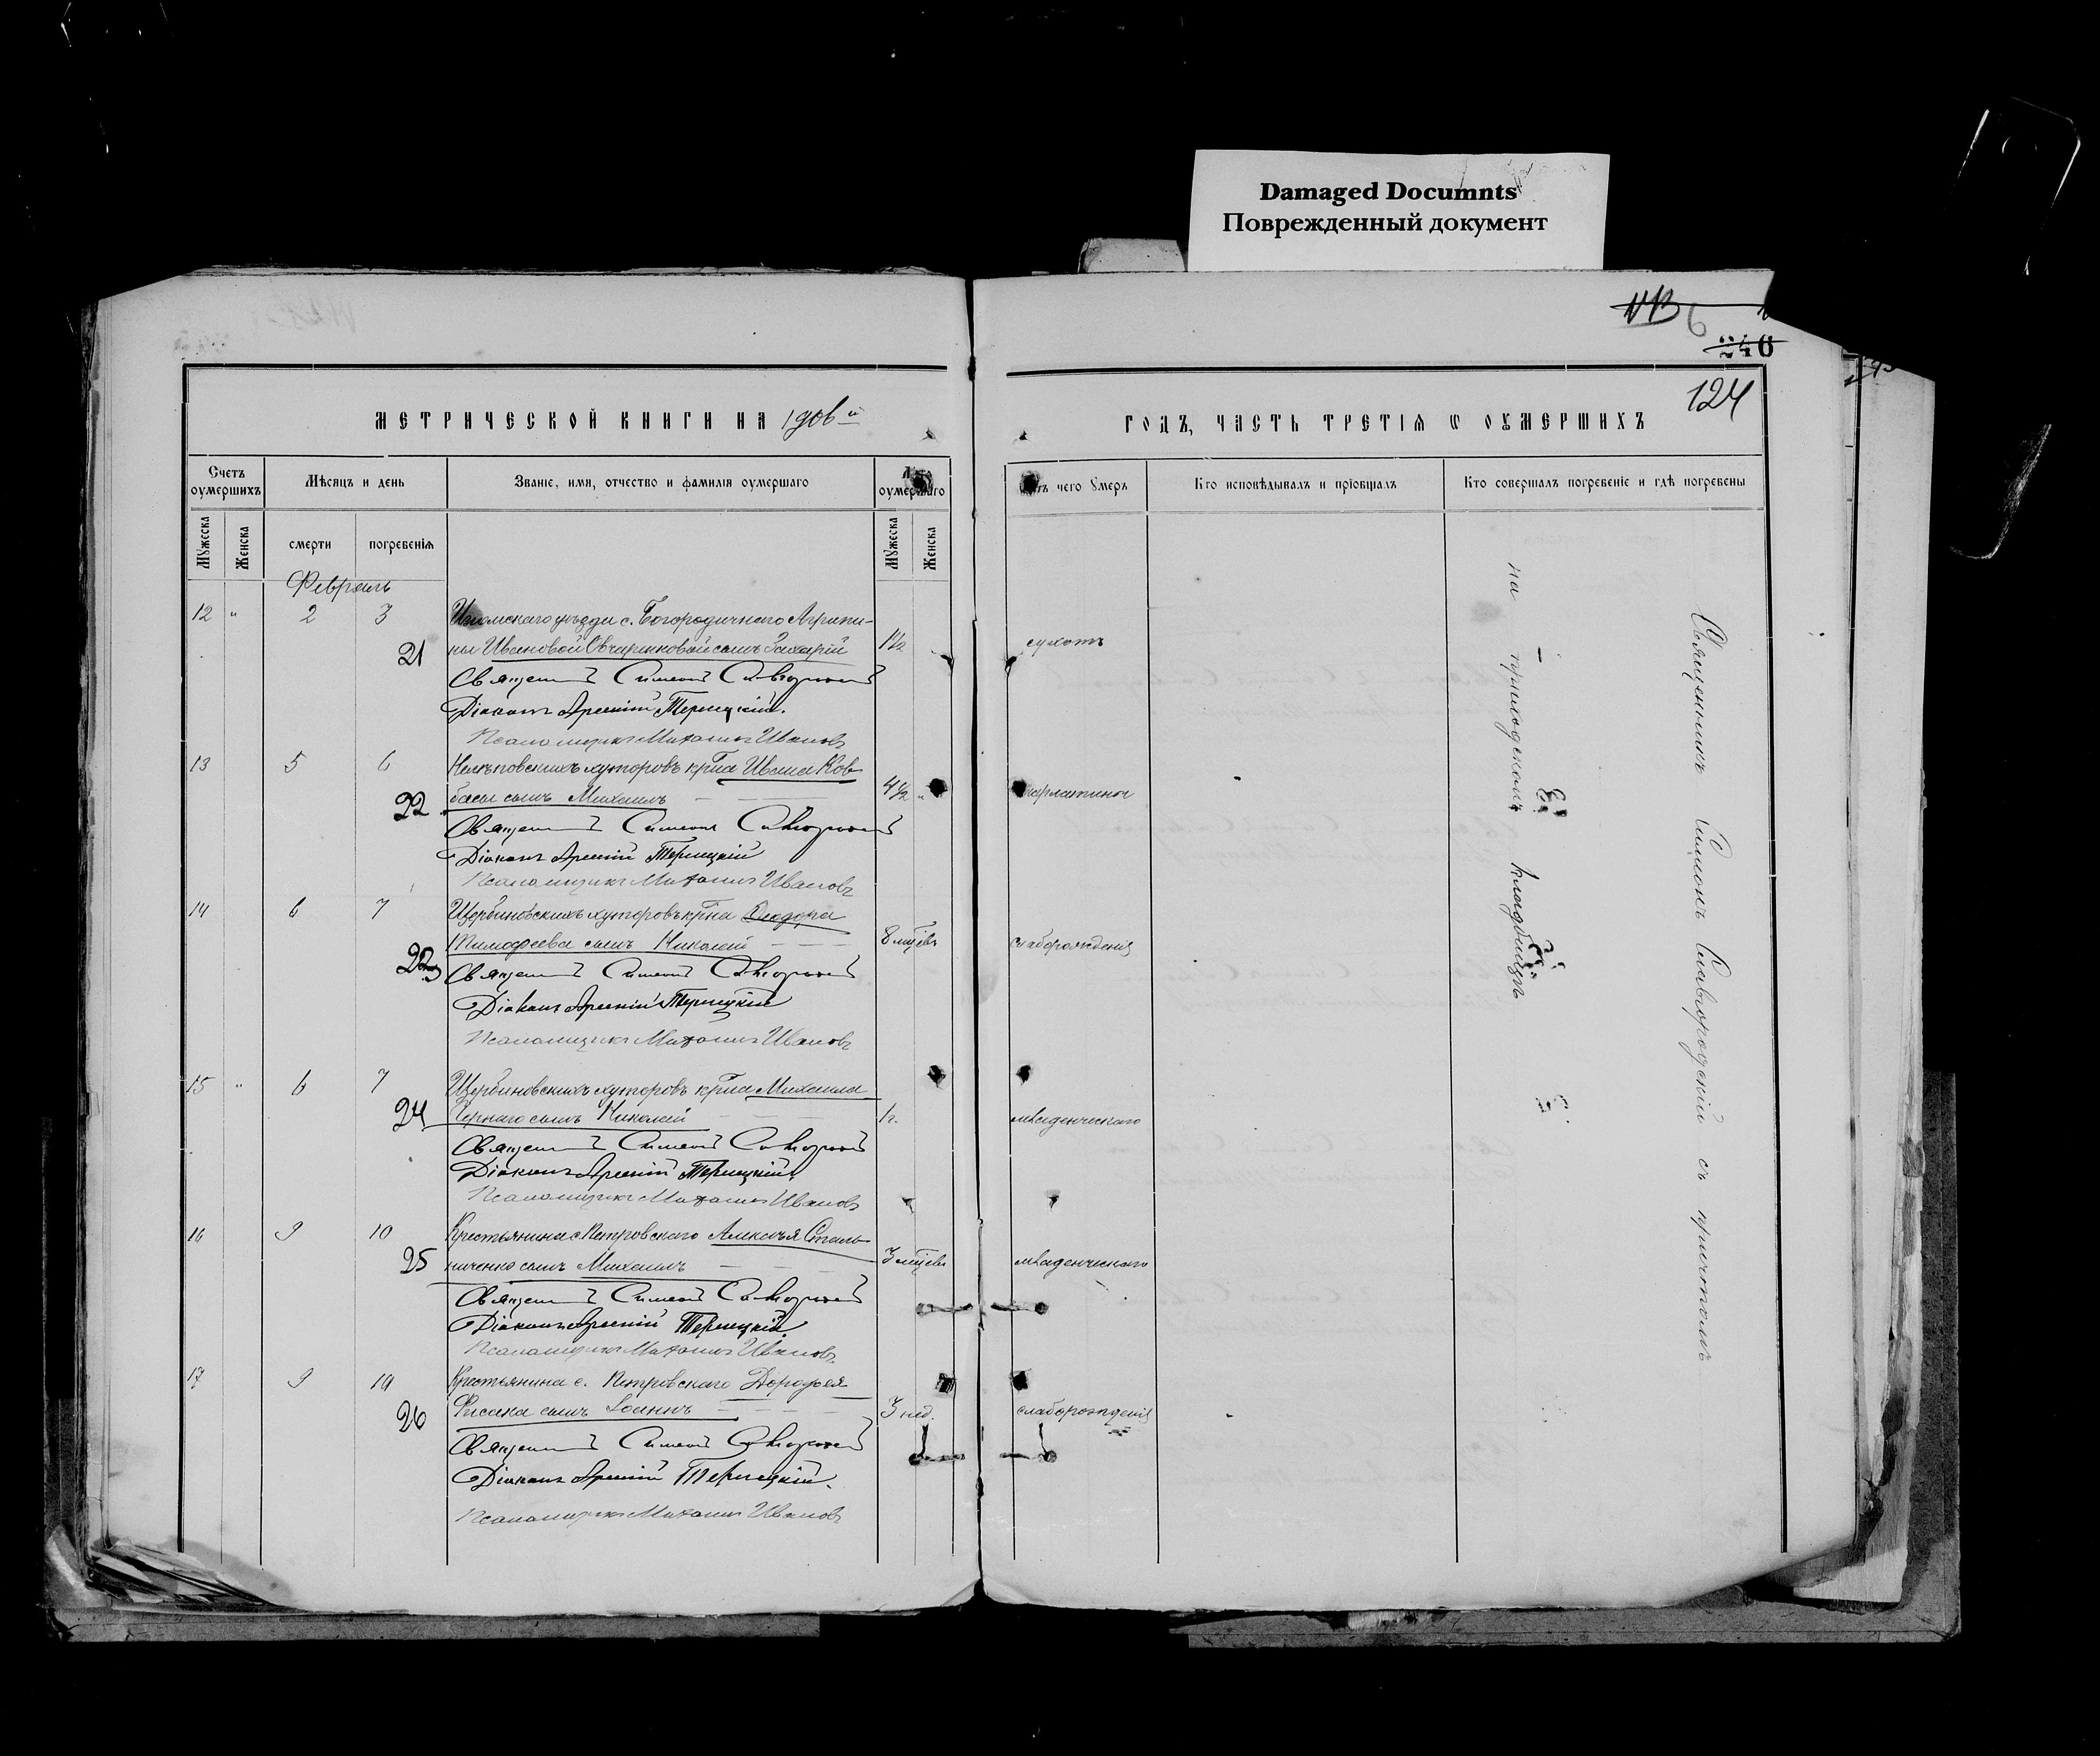 Damaged Documnts
Поврежденный документ
246
124
МЕТРИЧЕСКОЙ КНИГИ НА 1906 й
ГОДЪ, ЧАСТЬ ТРЕТІЯ Ѡ ОУМЕРШИХЪ
Счетъ оумершихъ
Мѣсяцъ и день
Званіе, имя, отчество и фамилія оумершаго
Лѣта оумершаго
Отъ чего Умеръ
Кто исповѣдывалъ и пріобщалъ
Кто совершалъ погребеніе и гдѣ погребены
Мужеска
Женска
смерти
погребенія
Мужеска
Женска
Февраль
12 " 2 3 Изюмскаго уѣзда с. Богородичнаго Агрипи-
21 ны Ивановой Овчаренковой сынъ Захарій 1½ сухотъ
Священникъ Симеонъ
Діаконъ Арсеній Терлецкій.
Псаломщикъ Михаилъ Ивановъ
13 5 6 Нелѣповскихъ хуторовъ крⷭ҇на Ивана Ков-
22 басы сынъ Михаилъ 4½ " скарлатины
Священникъ Симеонъ
Діаконъ Арсеній Терлецкій
Псаломщикъ Михаилъ Ивановъ
14 6 7 Щербиновскихъ хуторовъ крⷭ҇на Ѳеодора
23 Тимофеева сынъ Николай 8 мцевъ слаборожденія
Священникъ Симеонъ
Діаконъ Арсеній Терлецкій
Псаломщикъ Михаилъ Ивановъ
15 " 6 7 Щербиновскихъ хуторовъ крⷭ҇на Михаила
24 Чернаго сынъ Николай 1 г. младенческаго
Священникъ Симеонъ
Діаконъ Арсеній Терлецкій
Псаломщикъ Михаилъ Ивановъ
16 9 10 Крестьянина с. Петровскаго Алексѣя Сталь-
25 ниченко сынъ Михаилъ 3 мцевъ младенческаго
Священникъ Симеонъ
Діаконъ Арсеній Терлецкій.
Псаломщикъ Михаилъ Ивановъ
17 9 10 Крестьянина с. Петровскаго Дорофея
26 сынъ Іоаннъ 3 нед. слаборожденія
Священникъ Симеонъ
Діаконъ Арсеній Терлецкій.
Псаломщикъ Михаилъ Ивановъ
Священникъ Симеонъ Славгородскій съ причтомъ
на приходскомъ кладбищѣ